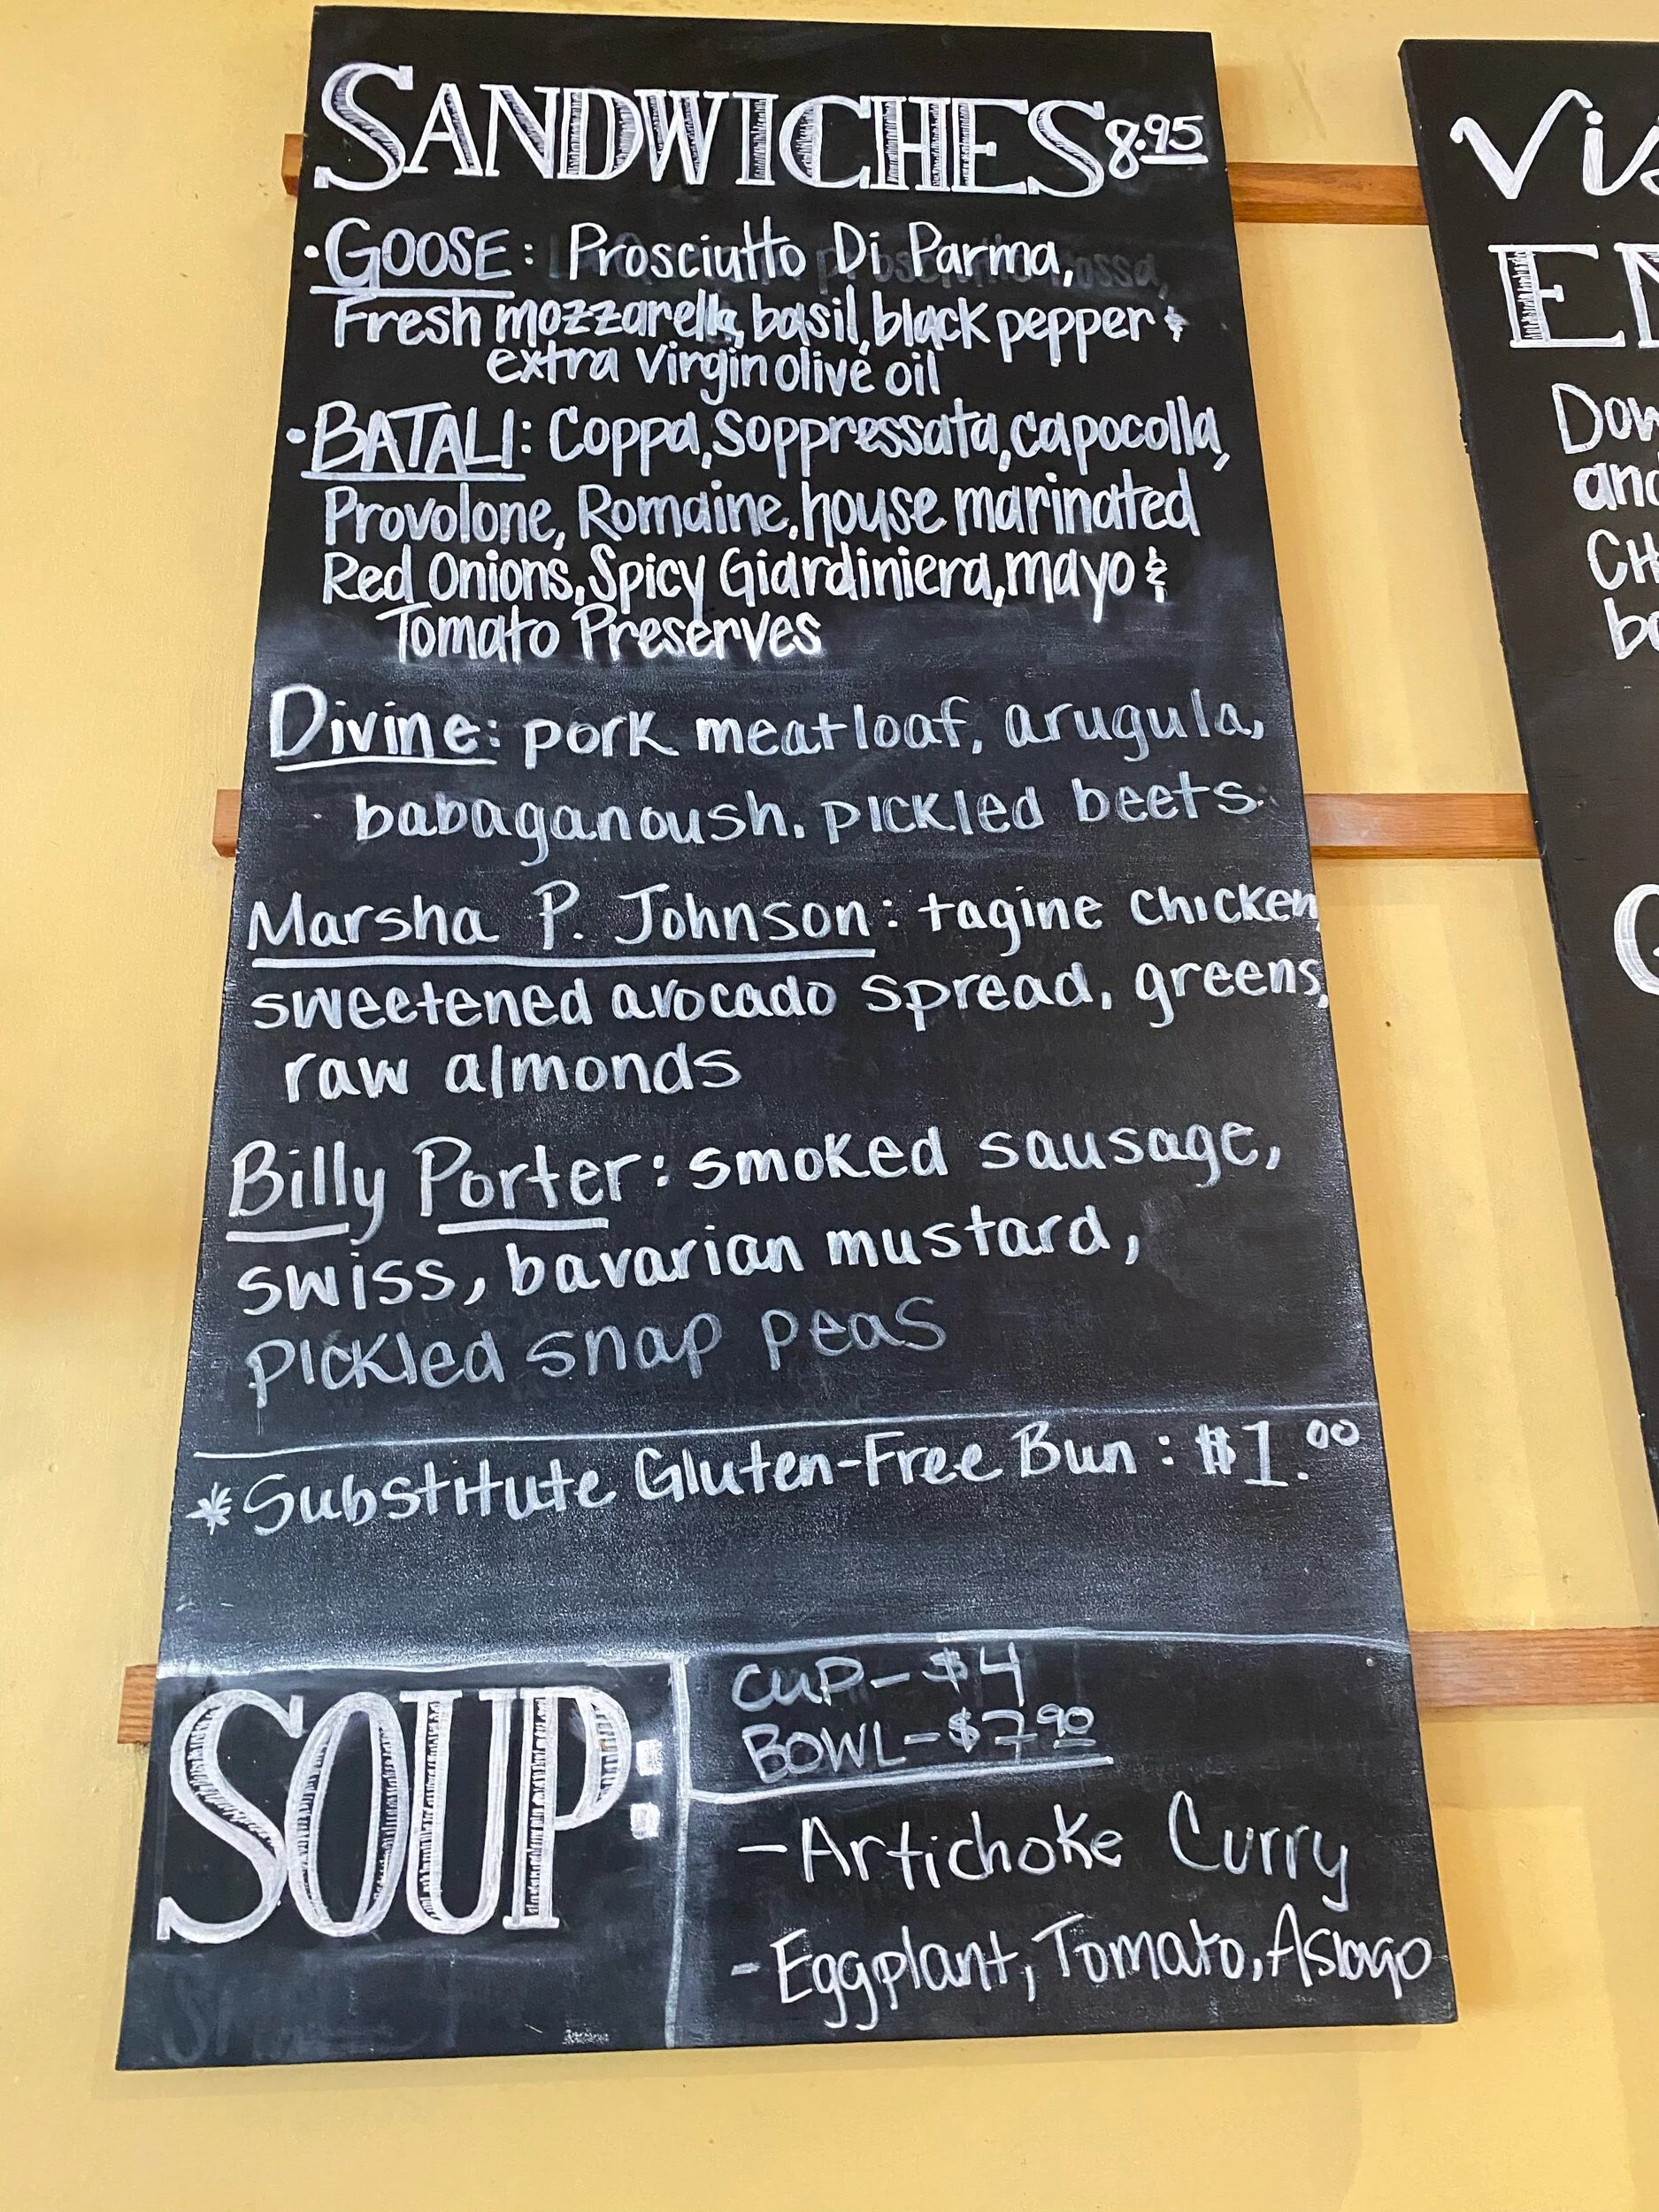 SANDWICHES 8.95
• GOOSE: Prosciutto Di Parma,
Fresh mozzarella, basil, black pepper &
extra virgin olive oil
• BATALI: Coppa, Soppressata, capocolla,
Provolone, Romaine, house marinated
Red Onions, Spicy Giardiniera, mayo &
Tomato Preserves
Divine: pork meatloaf, arugula,
babaganoush, pickled beets
Marsha P. Johnson: tagine chicken
sweetened avocado spread, greens,
raw almonds
Billy Porter: smoked sausage,
swiss, bavarian mustard,
pickled snap peas
*Substitute Gluten-Free Bun: $1.00
SOUP:
CUP - $4
BOWL - $7 90
- Artichoke Curry
- Eggplant, Tomato, Asiago
and